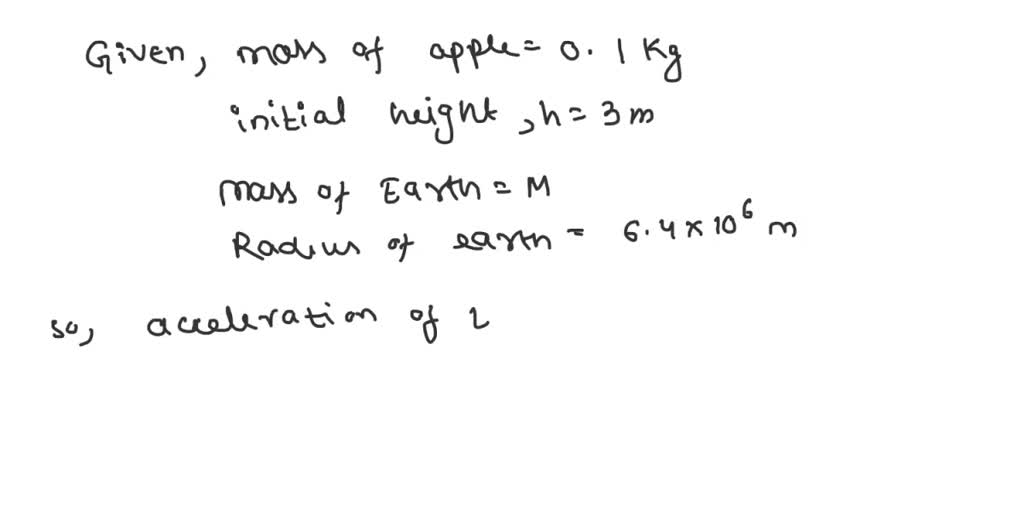 Given, mass of apple = 0.1 Kg
initial height, h = 3 m
mass of Earth = M
Radius of earth = 6.4 × 10⁶ m
so, acceleration of